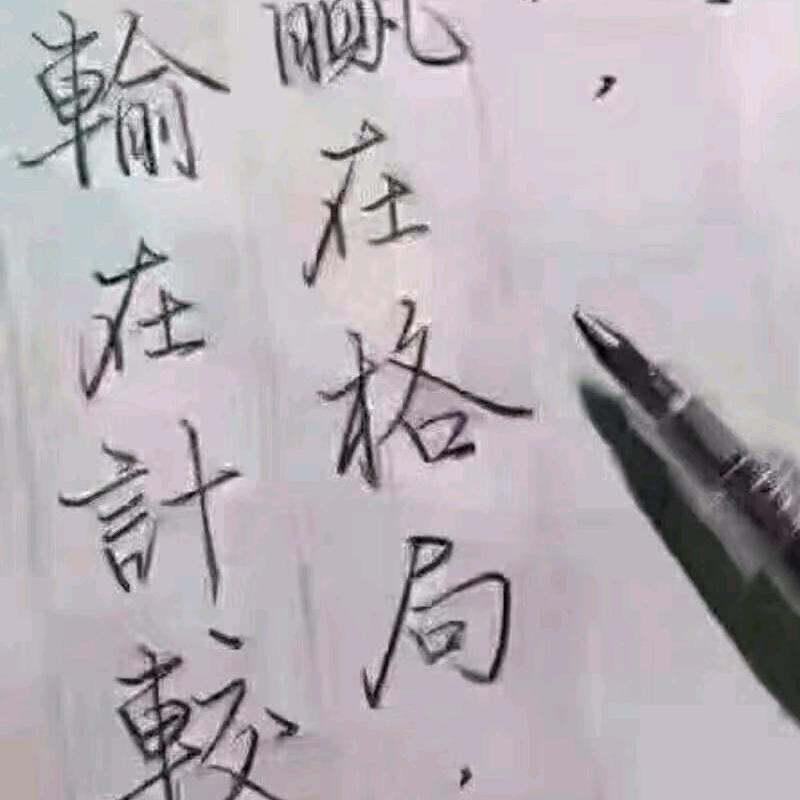 赢在格局,
輸在計較